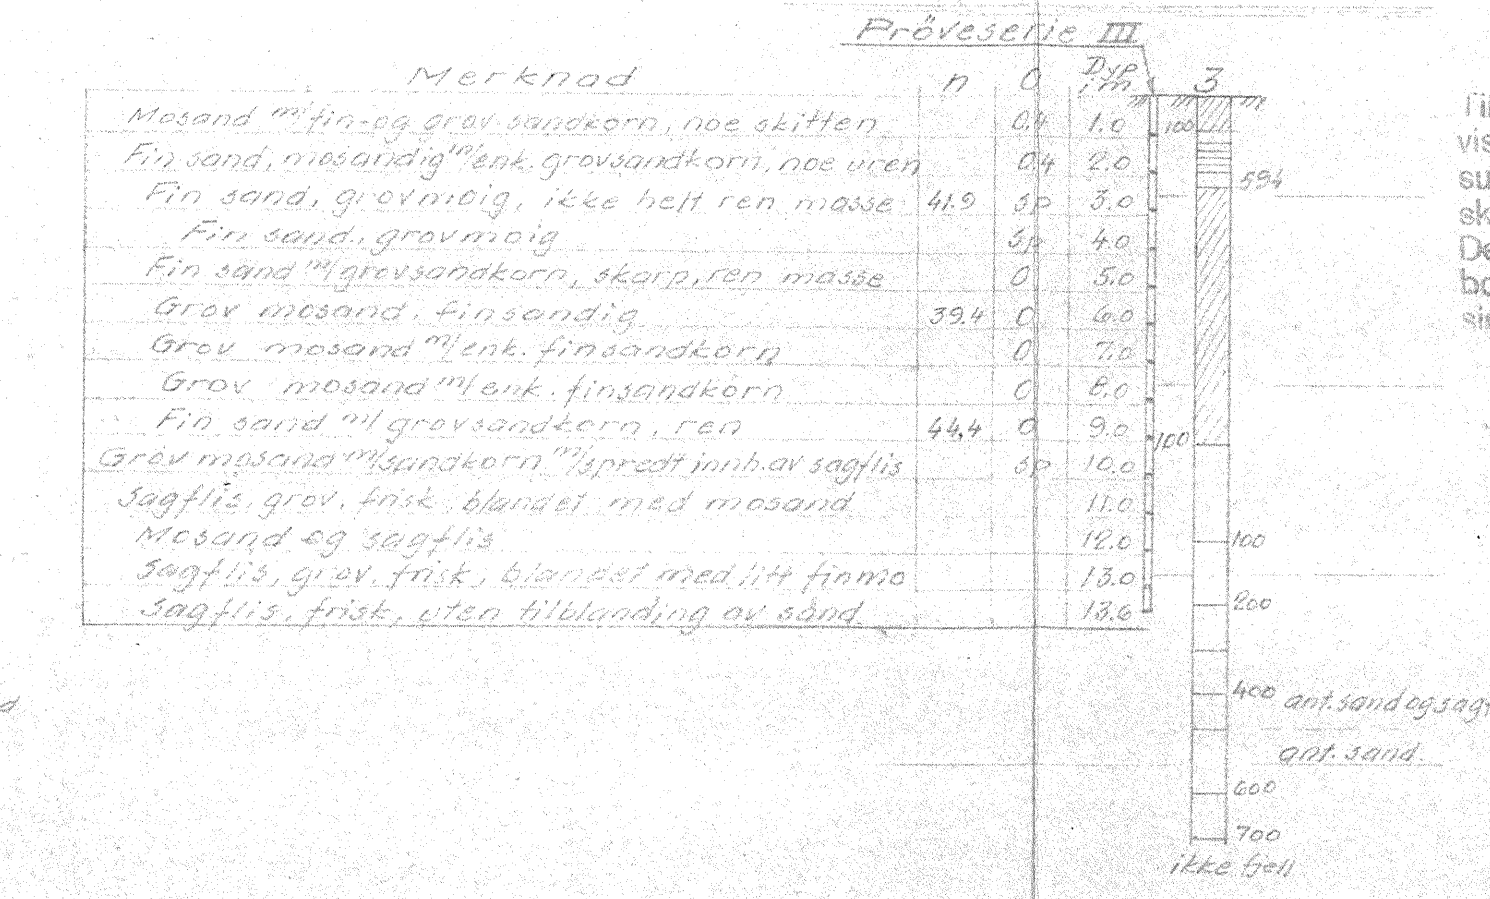 Pröveserie III
Merknad n O Dyp i m 3
Mosand m/fin-og grov sandkorn, noe skitten 0.4 1.0
Fin sand, mosandig m/enk. grovsandkorn, noe uren 0.4 2.0
Fin sand, grovmoig, ikke helt ren masse 41.9 sp 3.0
Fin sand, grovmoig sp 4.0
Fin sand m/grovsandkorn, skarp, ren masse 0 5.0
Grov mosand, finsandig 39.4 0 6.0
Grov mosand m/enk. finsandkorn 0 7.0
Grov mosand m/enk. finsandkorn 0 8.0
Fin sand m/grovsandkorn, ren 44.4 0 9.0
Grov mosand m/sandkorn m/spredt innh. av sagflis sp 10.0
Sagflis, grov, frisk, blandet med mosand 11.0
Mosand og sagflis 12.0
Sagflis, grov, frisk, blandet med litt finmo 13.0
Sagflis, frisk, uten tilblanding av sand 13.6
100
594
100
100
200
400 ant. sand og sagf
ant. sand.
600
700
ikke fjell
vis
su
sk
De
bo
sin